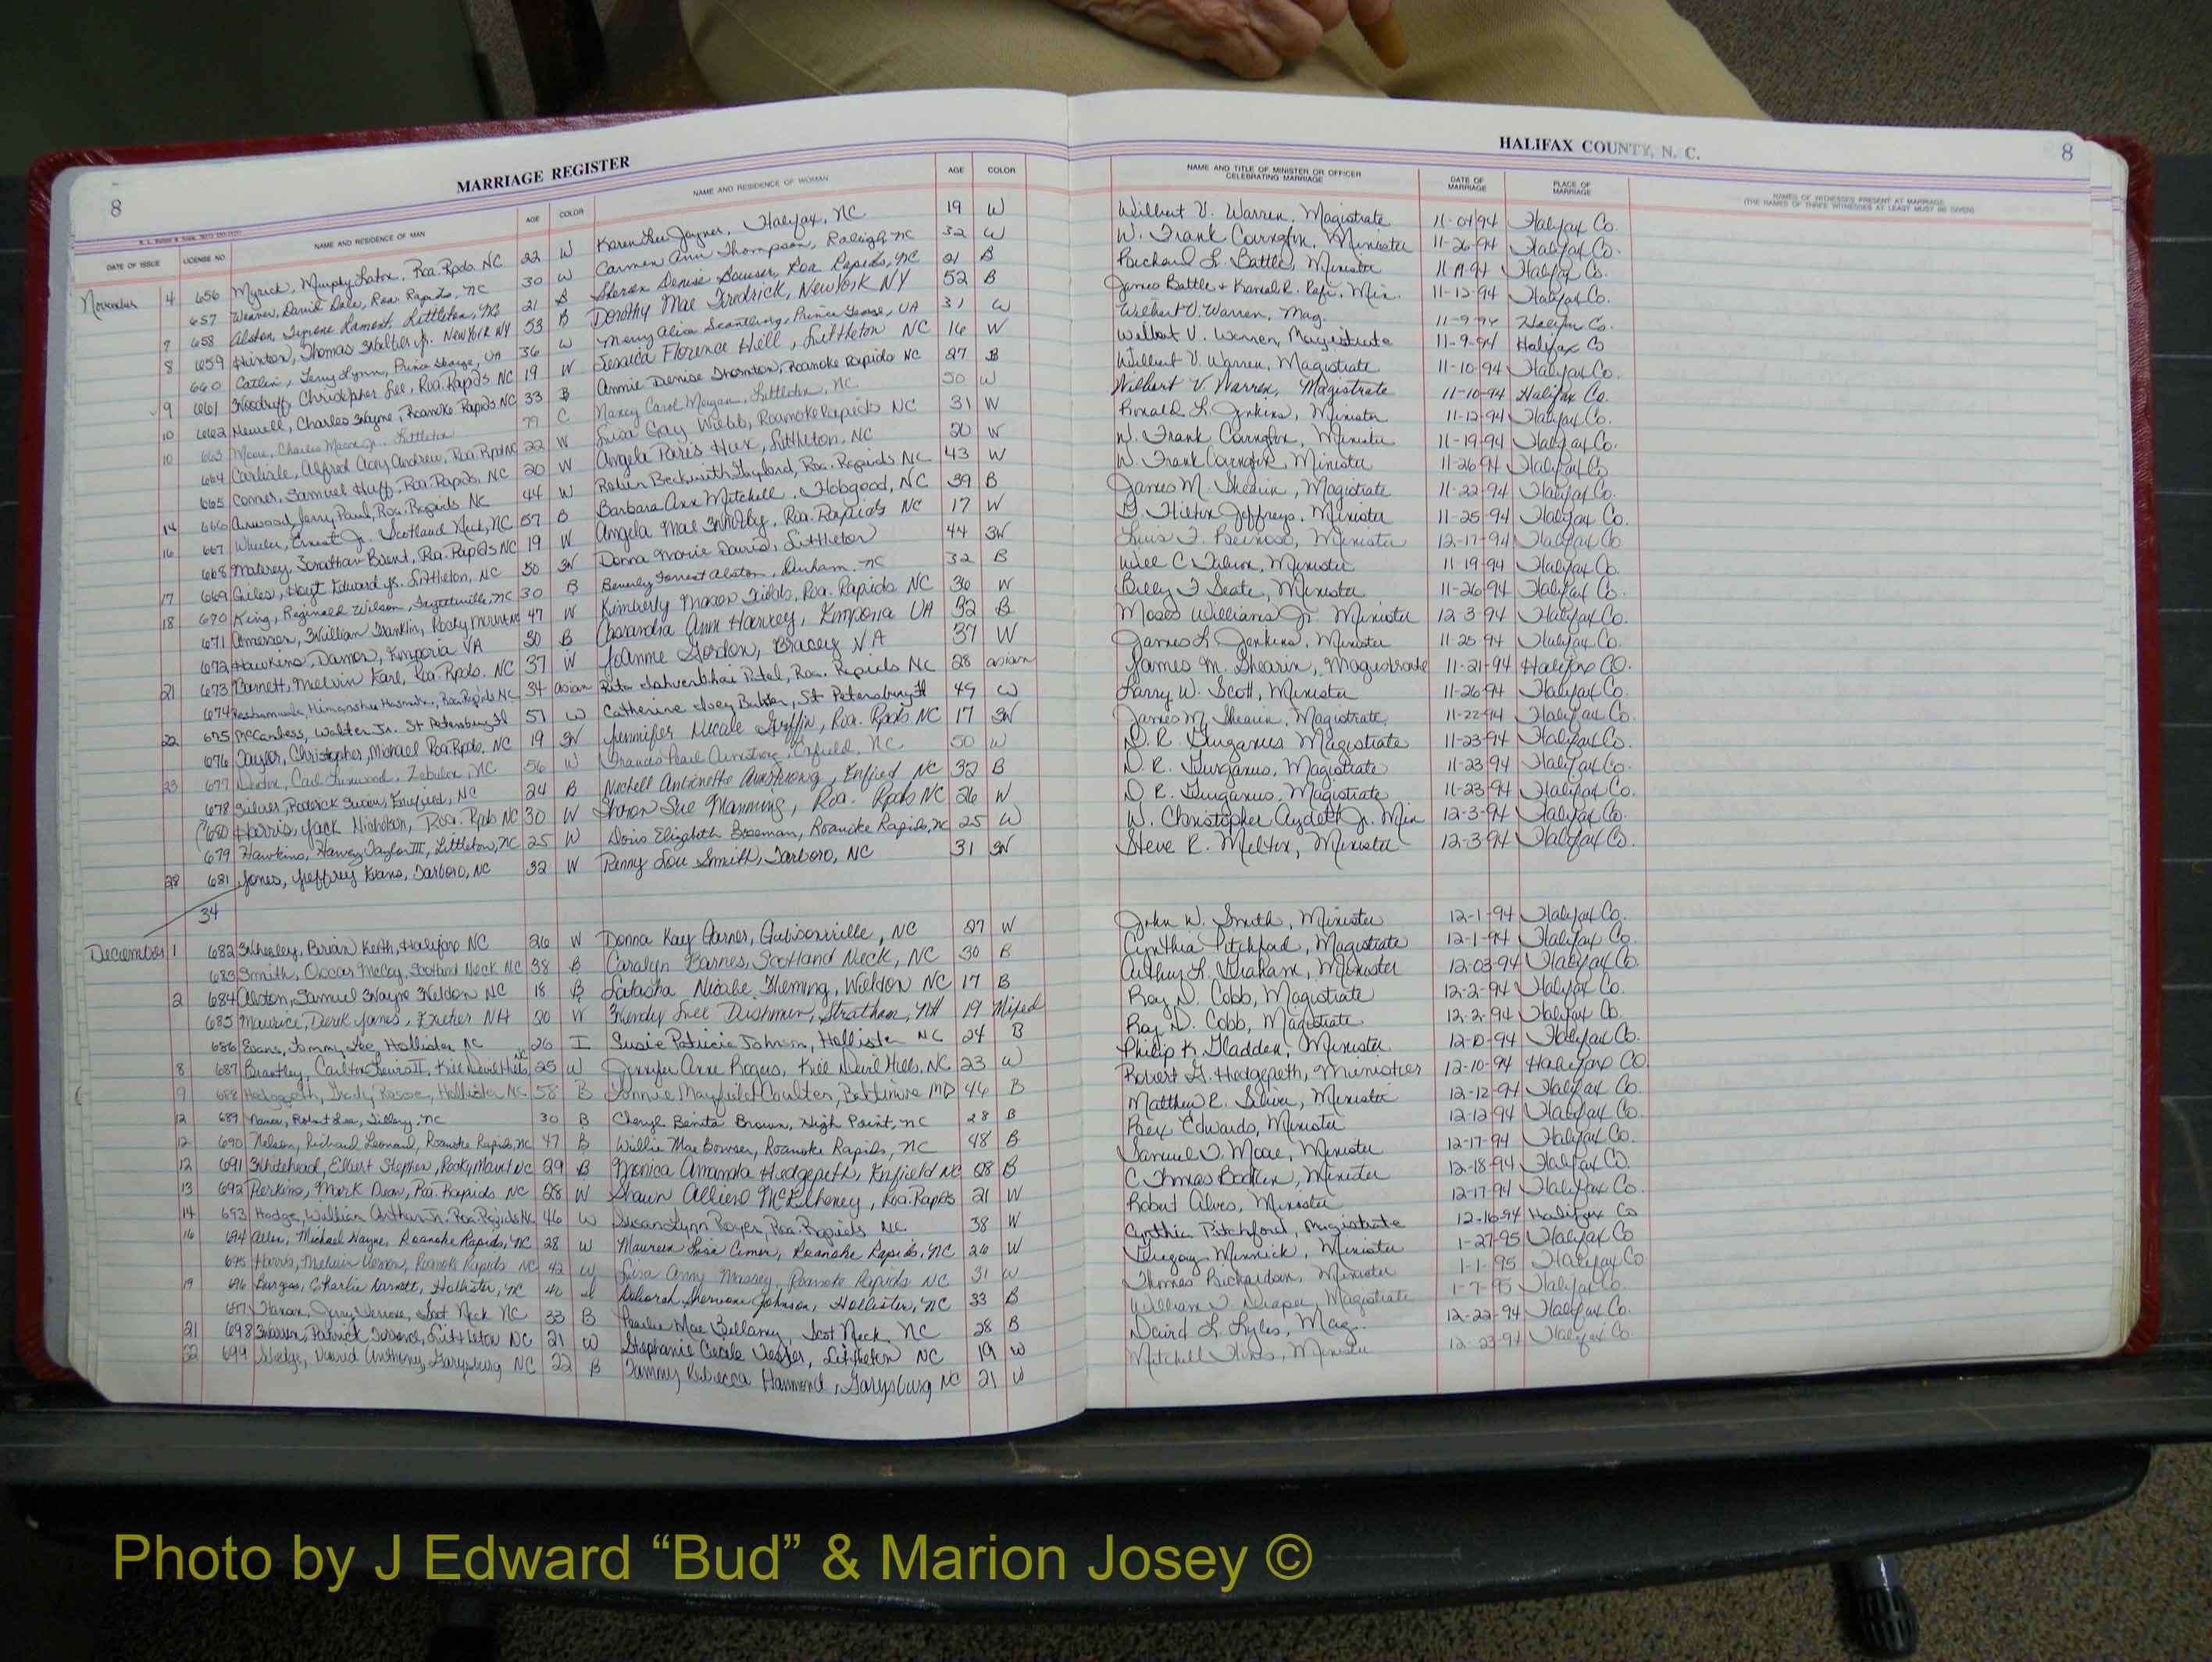 MARRIAGE REGISTER
8
DATE OF ISSUE LICENSE NO NAME AND RESIDENCE OF MAN AGE COLOR NAME AND RESIDENCE OF WOMAN AGE COLOR
November 4 656 Myrick, Murphy Roa. Rpds. NC 22 W Karen Lee Joyner, Halifax, NC 19 W
657 Weaver, David Dale, Roa. Rapids, NC 30 W Carmen Ann Thompson, Raleigh, NC 32 W
7 658 Alston, Tyrone Lamont, Littleton, NC 21 B Sharon Denise Bowser, Roa Rapids, NC 21 B
8 659 Hinton, Thomas Walter Jr. New York NY 53 B Dorothy Mae Fredrick, New York NY 52 B
660 Catlin, Terry Lynn, Prince George, VA 36 W Merry Alice Prince George, VA 31 W
9 661 Woodruff, Christopher Lee, Roa. Rapids NC 19 W Jessica Florence Hill, Littleton NC 16 W
10 662 Newell, Charles Wayne, Roanoke Rapids NC 33 B Annie Denise Thornton, Roanoke Rapids NC 27 B
10 663 Moore, Charles Mason Jr. Littleton 79 C Nancy Carol Littleton, NC 50 W
664 Carlisle, Alfred Andrew, Roa. Rpds NC 22 W Lisa Gay Webb, Roanoke Rapids NC 31 W
665 Conner, Samuel Huff, Roa. Rapids, NC 20 W Angela Paris Hux, Littleton, NC 20 W
14 666 Jerry Paul, Roa. Rapids NC 44 W Robin Beckwith Roa. Rapids NC 43 W
16 667 Wheeler, Ernest Jr. Scotland Neck, NC 57 B Barbara Ann Mitchell, Hobgood, NC 39 B
668 Jonathan Brent, Roa. Rapids NC 19 W Angela Mae Roa. Rapids NC 17 W
17 669 Giles, Hoyt Edward Jr. Littleton, NC 50 W Donna Marie Davis, Littleton 44 W
18 670 King, Reginald Wilson, Fayetteville, NC 30 B Beverly Forrest Alston, Durham, NC 32 B
671 Amerson, William Franklin, Rocky Mount NC 47 W Kimberly Roa. Rapids NC 36 W
672 Hawkins, Damon, Emporia VA 30 B Cassandra Ann Harvey, Emporia VA 32 B
21 673 Barnett, Melvin Earl, Roa. Rpds. NC 37 W JoAnne Gordon, Bracey VA 37 W
674 Himanshu Roa Rapids NC 34 asian Rita Patel, Roa. Rapids NC 28 asian
22 675 McCanless, Walter Jr. St Petersburg Fl 51 W Catherine Joey St Petersburg Fl 49 W
676 Taylor, Christopher, Michael Roa Rpds. NC 19 W Jennifer Nicole Griffin, Roa. Rpds NC 17 W
23 677 Carl Linwood, Zebulon, NC 56 W Frances Pearl Armstrong, Enfield, NC 50 W
678 Silver, Roderick Enfield, NC 24 B Nichell Antoinette Armstrong, Enfied NC 32 B
680 Harris, Jack Nicholas, Roa. Rpds NC 30 W Sharon Sue Manning, Roa. Rpds NC 26 W
679 Hawkins, Harvey Taylor III, Littleton, NC 25 W Doris Elizabeth Bozeman, Roanoke Rapids, NC 25 W
28 681 Jones, Jeffrey Evans, Tarboro, NC 32 W Penny Lou Smith, Tarboro, NC 31 W
34
December 1 682 Wheeley, Brian Keith, Halifax NC 26 W Donna Kay Garner, Gibsonville, NC 27 W
683 Smith, Oscar McCoy, Scotland Neck NC 38 B Caralyn Barnes, Scotland Neck, NC 30 B
2 684 Alston, Samuel Wayne Weldon NC 18 B Latasha Nicole Fleming, Weldon NC 17 B
685 Maurice, Derek James, Exeter NH 20 W Wendy Lee Dishman, Stratham, NH 19 Mixed
686 Evans, Tommy Lee, Hollister NC 26 I Susie Patricia Johnson, Hollister NC 24 B
8 687 Brantley, Carlton Lewis II, Kill Devil Hills, NC 25 W Jennifer Anne Rogers, Kill Devil Hills, NC 23 W
9 688 Hedgepeth, Grady Roscoe, Hollister NC 58 B Connie Mayfield Coulter, Baltimore MD 46 B
12 689 Nance, Robert Lee, Tillery, NC 30 B Cheryl Benita Brown, High Point, NC 28 B
12 690 Nelson, Richard Leonard, Roanoke Rapids, NC 47 B Willie Mae Bowser, Roanoke Rapids, NC 48 B
12 691 Whitehead, Elbert Stephen, Rocky Mount NC 29 B Monica Amanda Hedgepeth, Enfield NC 28 B
13 692 Perkins, Mark Dean, Roa Rapids NC 28 W Shawn McElheney, Roa. Rapids 21 W
14 693 Hodge, William Arthur Jr. Roa Rapids NC 46 W Susan Lynn Royer, Roa. Rapids NC 38 W
16 694 Allen, Michael Wayne, Roanoke Rapids, NC 28 W Maureen Lisa Comer, Roanoke Rapids, NC 26 W
695 Harris, Melvin Vernon, Roanoke Rapids NC 42 W Lisa Anny Massey, Roanoke Rapids NC 31 W
19 696 Burgess, Charlie Barnett, Hollister, NC 40 I Deborah Johnson, Hollister, NC 33 B
697 Jerry Scot Neck NC 33 B Mae Bellamy, Scot Neck, NC 28 B
21 698 Warren, Patrick Littleton NC 21 W Stephanie Cecile Littleton NC 19 W
22 699 Sledge, David Anthony, Garysburg NC 22 B Tammy Rebecca Hammond, Garysburg NC 21 W
HALIFAX COUNTY, N. C.
8
NAME AND TITLE OF MINISTER OR OFFICER CELEBRATING MARRIAGE DATE OF MARRIAGE PLACE OF MARRIAGE NAMES OF WITNESSES PRESENT AT MARRIAGE
(THE NAMES OF THREE WITNESSES AT LEAST MUST BE GIVEN)
Wilbert V. Warren, Magistrate 11-04-94 Halifax Co.
W. Frank Covington, Minister 11-26-94 Halifax Co.
Richard L. Battle, Minister 11-19-94 Halifax Co.
James Battle + Min. 11-12-94 Halifax Co.
Wilbert V. Warren, Mag. 11-9-94 Halifax Co.
Wilbert V. Warren, Magistrate 11-9-94 Halifax Co
Wilbert V. Warren, Magistrate 11-10-94 Halifax Co.
Wilbert V. Warren, Magistrate 11-10-94 Halifax Co.
Ronald L. Jenkins, Minister 11-12-94 Halifax Co.
W. Frank Covington, Minister 11-19-94 Halifax Co.
W. Frank Covington, Minister 11-26-94 Halifax Co
James M. Shearin, Magistrate 11-22-94 Halifax Co.
Jeffreys, Minister 11-25-94 Halifax Co.
Minister 12-17-94 Halifax Co
Minister 11-19-94 Halifax Co.
Billy F. Seate, Minister 11-26-94 Halifax Co.
Moses Williams Jr. Minister 12-3-94 Halifax Co.
James L. Jenkins, Minister 11-25-94 Halifax Co.
James M. Shearin, Magistrate 11-21-94 Halifax CO.
Larry W. Scott, Minister 11-26-94 Halifax Co.
James M. Shearin, Magistrate 11-22-94 Halifax Co.
D. R. Gurganus Magistrate 11-23-94 Halifax Co.
D. R. Gurganus, Magistrate 11-23-94 Halifax Co.
D. R. Gurganus, Magistrate 11-23-94 Halifax Co.
W. Christopher Aydlett Jr. Min 12-3-94 Halifax Co.
Steve R. Melton, Minister 12-3-94 Halifax Co.
John W. Smith, Minister 12-1-94 Halifax Co.
Cynthia Pitchford, Magistrate 12-1-94 Halifax Co.
Arthur L. Graham, Minister 12-03-94 Halifax Co.
Roy D. Cobb, Magistrate 12-2-94 Halifax Co.
Roy D. Cobb, Magistrate 12-2-94 Halifax Co.
Philip K. Gladden, Minister Halifax Co.
Robert G. Hedgepeth, Minister 12-10-94 Halifax CO.
Matthew R. Silver, Minister 12-12-94 Halifax Co.
Rex Edwards, Minister 12-12-94 Halifax Co.
Samuel D. Moore, Minister 12-17-94 Halifax Co.
C Thomas Minister 12-18-94 Halifax Co.
Robert Alves, Minister 12-17-94 Halifax Co.
Cynthia Pitchford, Magistrate 12-16-94 Halifax Co
Gregory Minnick, Minister 1-27-95 Halifax Co
Thomas Richardson, Minister 1-1-95 Halifax Co.
William D. Draper, Magistrate 1-7-95 Halifax Co.
David L. Lyles, Mag. 12-22-94 Halifax Co.
Mitchell Minister 12-23-94 Halifax Co.
Photo by J Edward “Bud” & Marion Josey ©